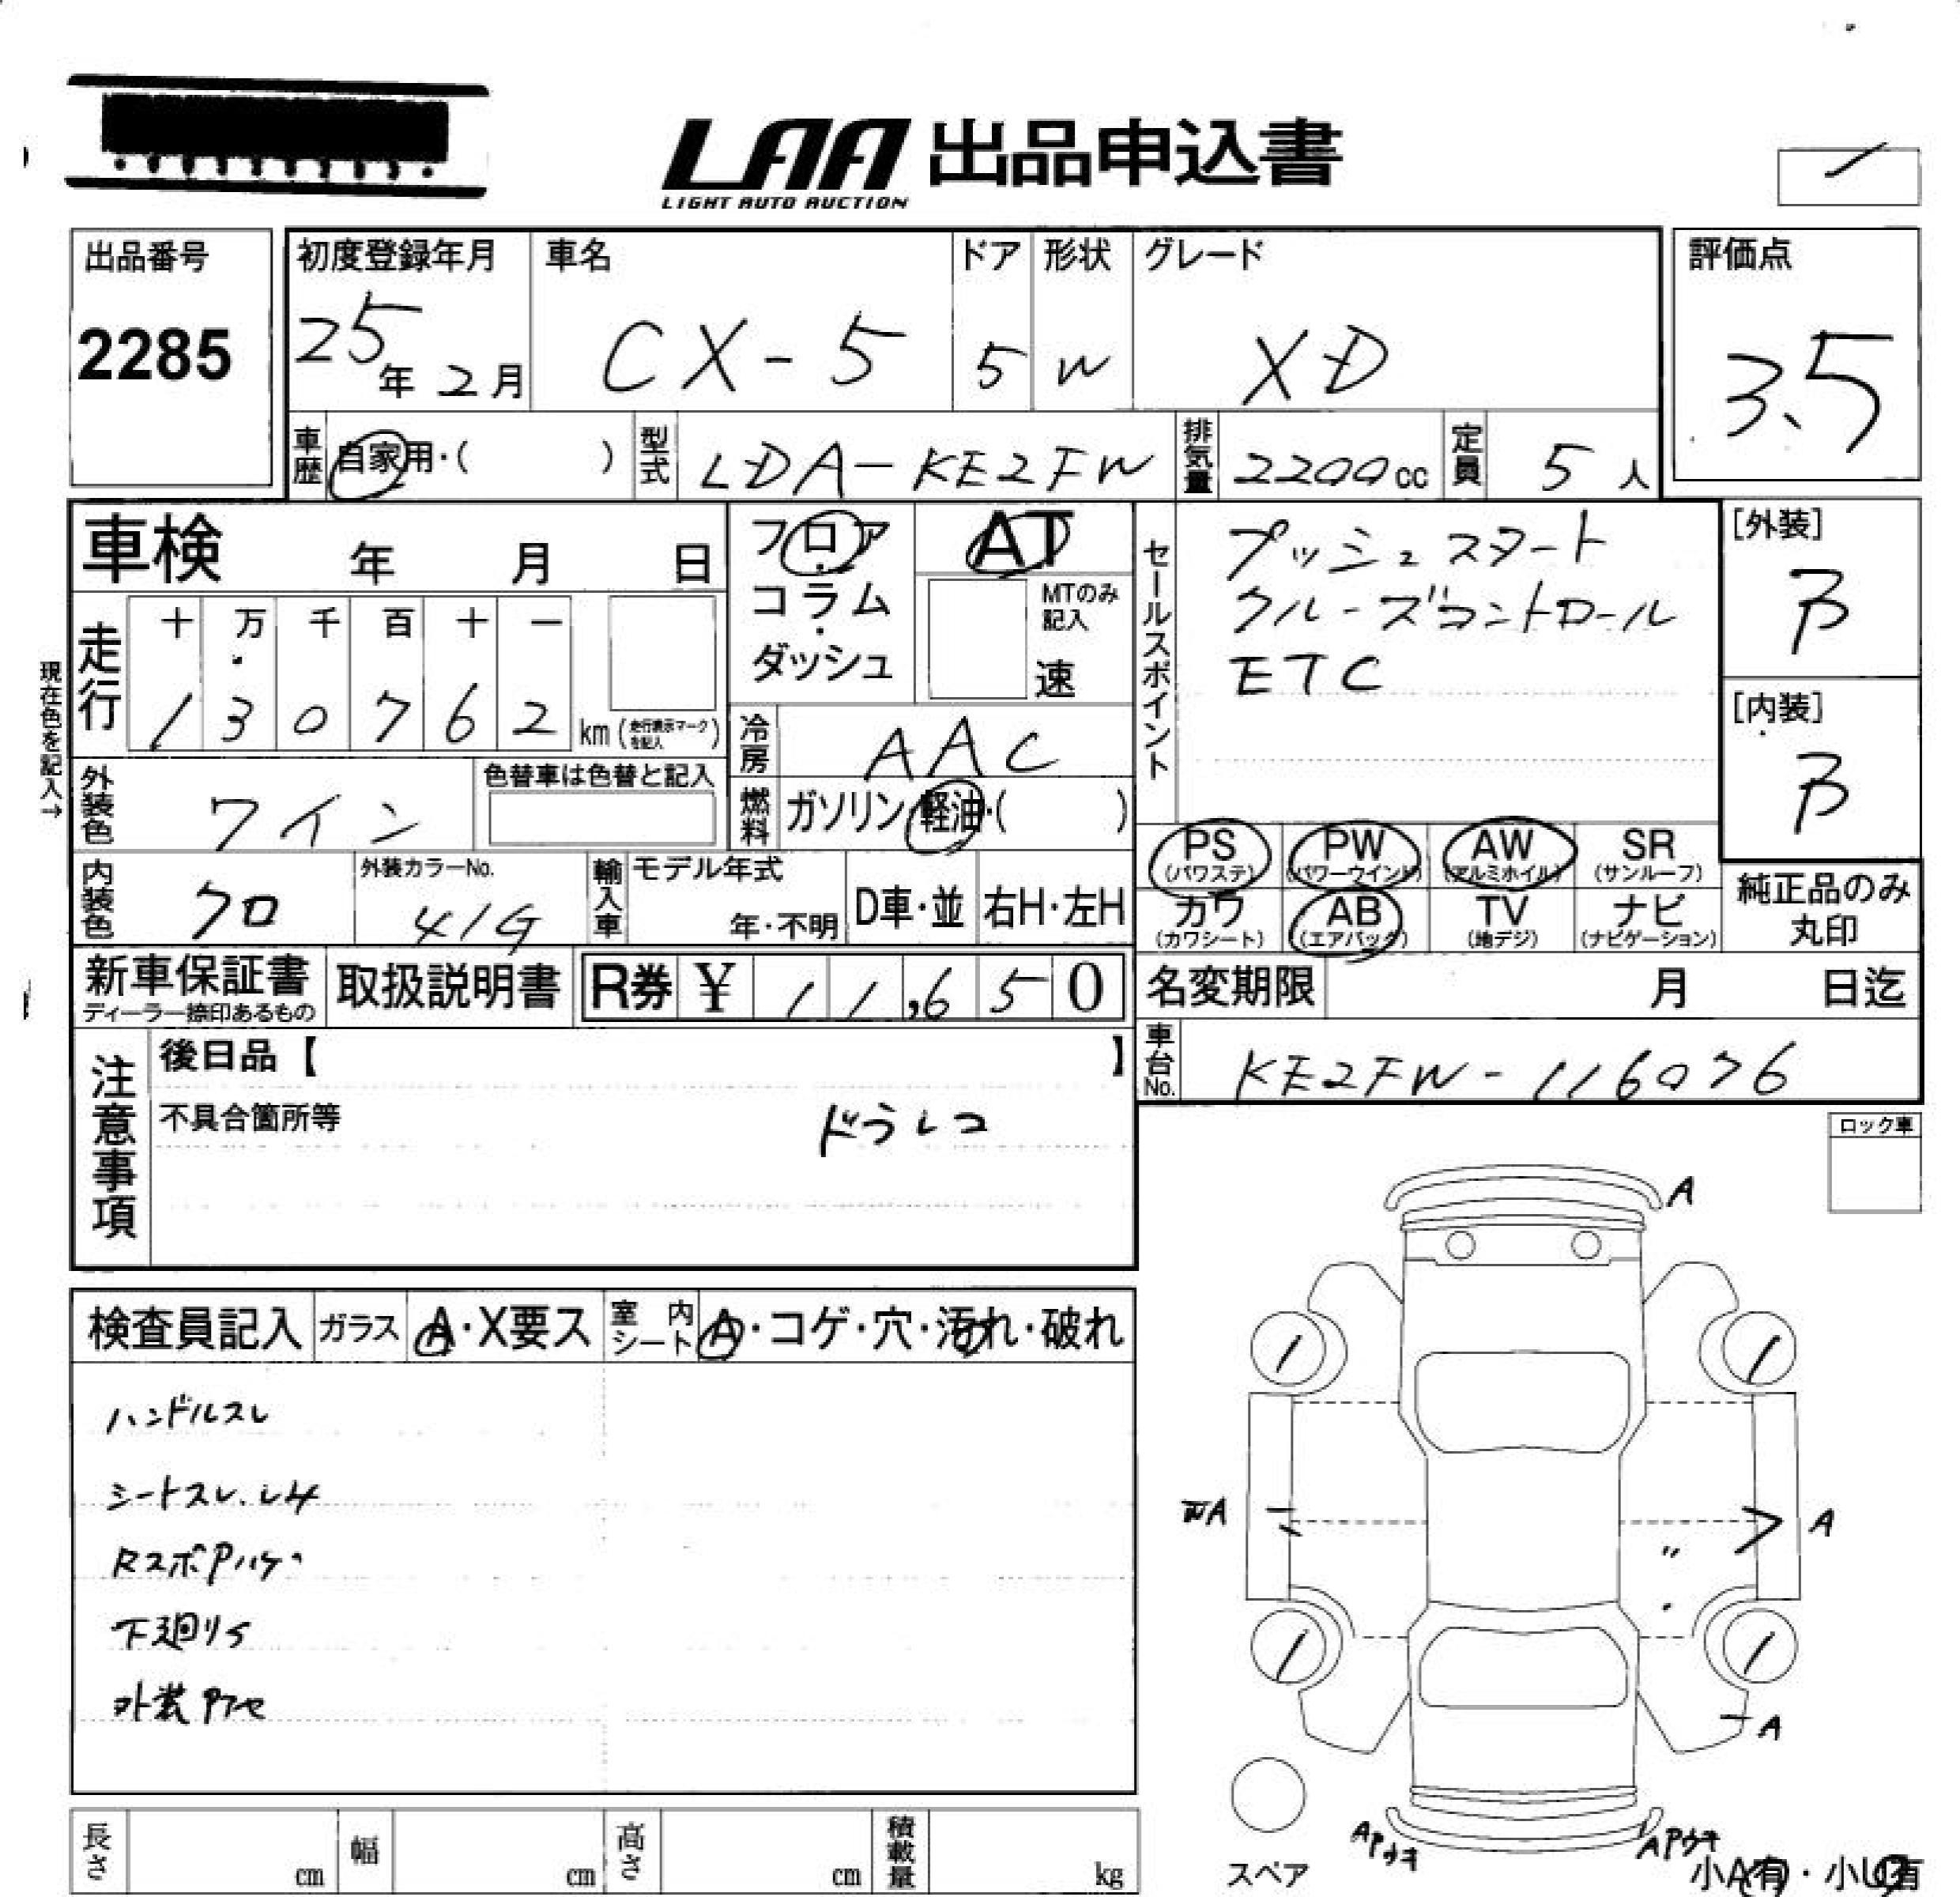 LAA 出品申込書
LIGHT AUTO AUCTION
出品番号
2285
初度登録年月
25年 2月
車名
CX-5
ドア
5
形状
W
グレード
XD
評価点
3.5
車歴
自家用・( )
型式
LDA-KE2FW
排気量
2200cc
定員
5人
車検 年 月 日
フロア・コラム・ダッシュ
AT
MTのみ記入
速
セールスポイント
プッシュスタート
クルーズコントロール
ETC
[外装]
B
[内装]
B
現在色を記入→
走行
十 万 千 百 十 一
1 3 0 7 6 2 km (走行表示マークを記入)
冷房
AAC
外装色
ワイン
色替車は色替と記入
燃料
ガソリン・軽油・( )
PS (パワステ)
PW (パワーウインド)
AW (アルミホイル)
SR (サンルーフ)
カワ (カワシート)
AB (エアバッグ)
TV (地デジ)
ナビ (ナビゲーション)
純正品のみ丸印
内装色
クロ
外装カラーNo.
41G
輸入車
モデル年式
年・不明
D車・並
右H・左H
新車保証書
ディーラー捺印あるもの
取扱説明書
R券 ¥ 11,650
名変期限 月 日迄
車台No.
KE2FW-116076
注意事項
後日品【 】
不具合箇所等
ドラレコ
ロック車
検査員記入
ガラス
A・X要ス
室内シート
A・コゲ・穴・汚れ・破れ
ハンドルスレ
シートスレ.シミ
RスポPハゲ
下廻りS
外装Pアセ
A
A
A
A
APウキ
APウキ
スペア
小A有・小U有
長さ cm
幅 cm
高さ cm
積載量 kg